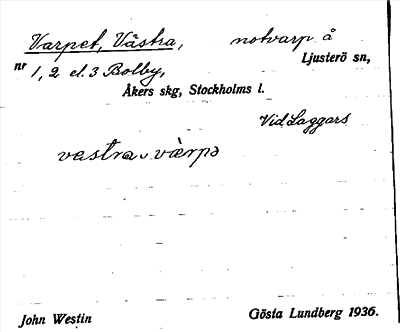 Varpet, Västra, notvarp å
nr 1, 2 el. 3 Bolby, Ljusterö sn,
Åkers skg, Stockholms l.
Vid Laggars
vastra värpə
John Westin Gösta Lundberg 1936.